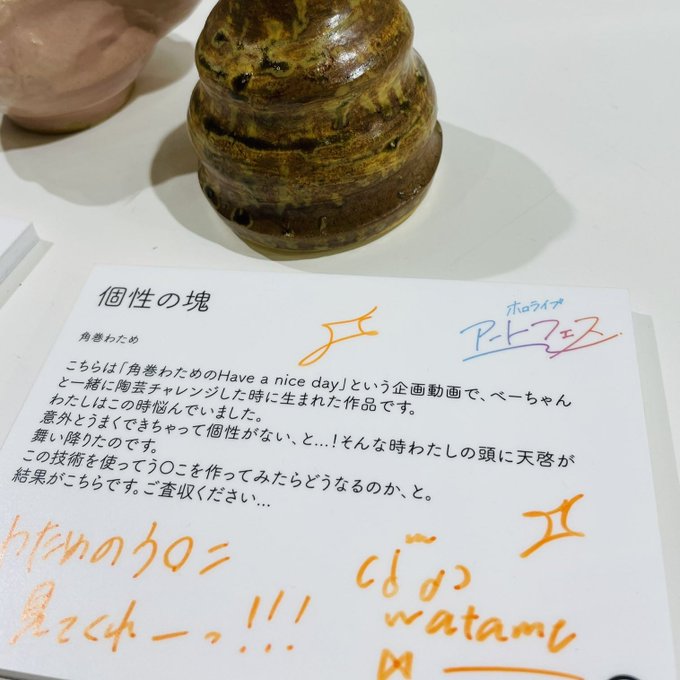 個性の塊
ホロライブ
アートフェス
角巻わため
こちらは「角巻わためのHave a nice day」という企画動画で、べーちゃん
と一緒に陶芸チャレンジした時に生まれた作品です。
わたしはこの時悩んでいました。
意外とうまくできちゃって個性がない、と…!そんな時わたしの頭に天啓が
舞い降りたのです。
この技術を使ってう〇こを作ってみたらどうなるのか、と。
結果がこちらです。ご査収ください…
わためのう〇こ
見てくれーっ!!!
watame